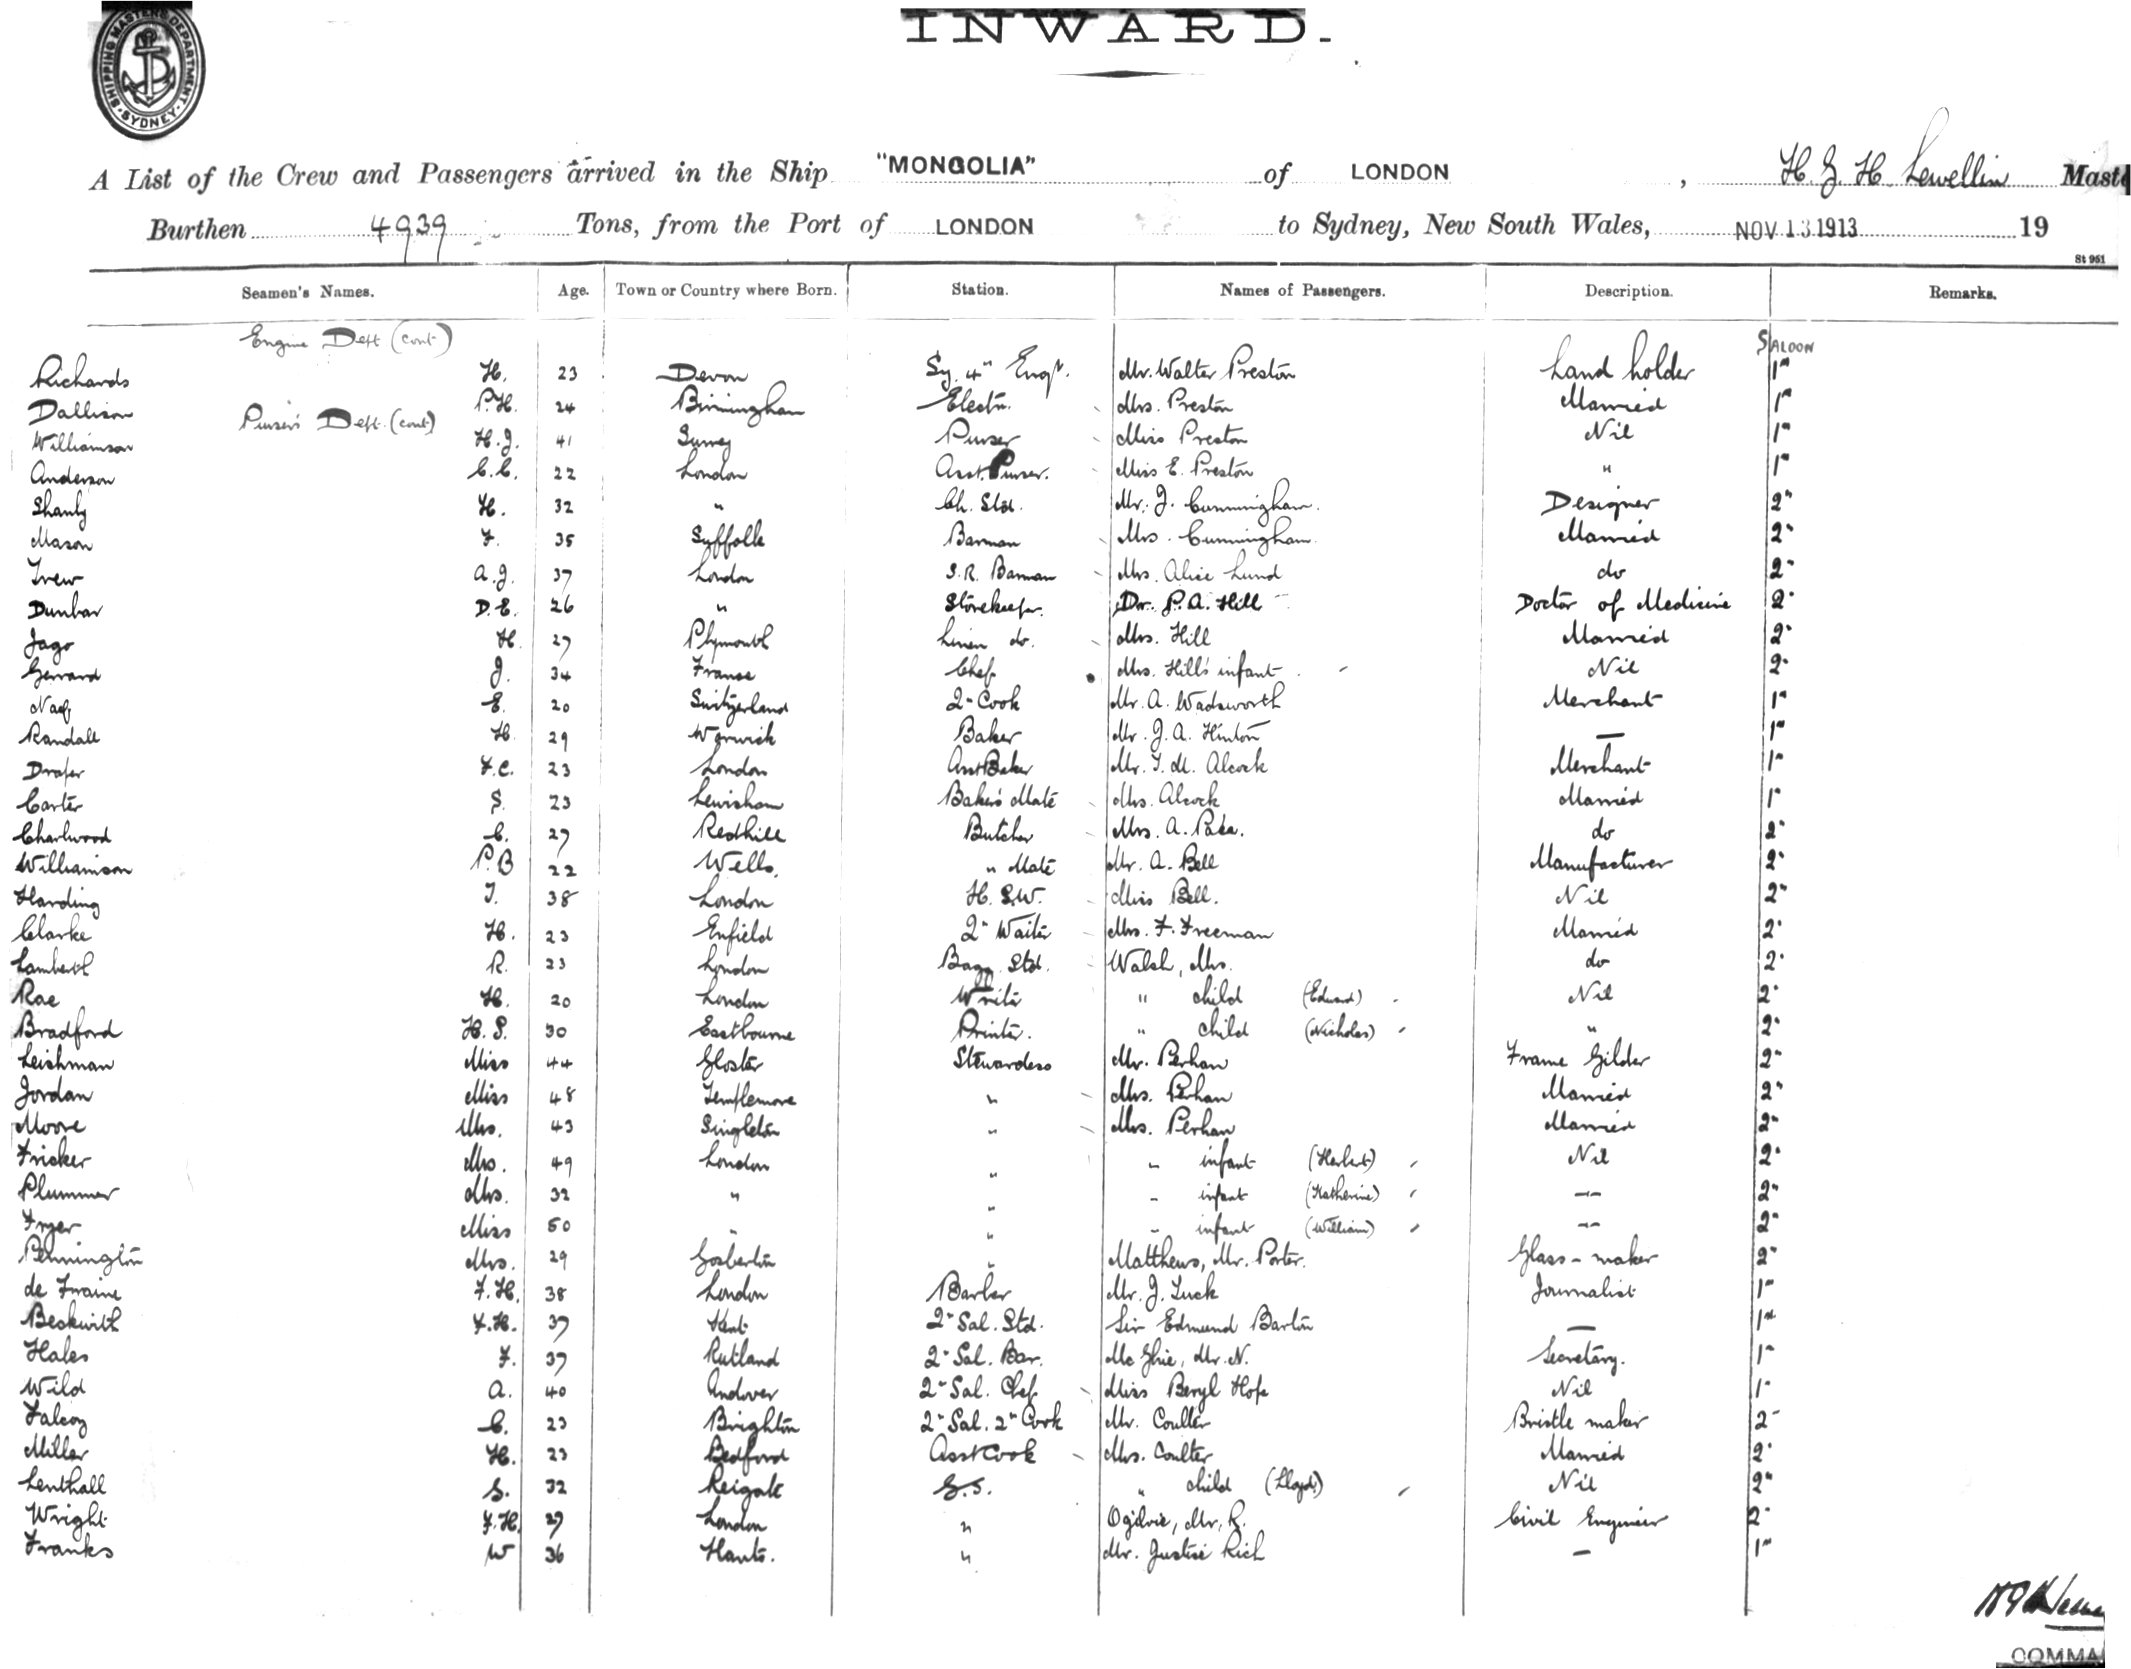 SHIPPING MASTERS DEPARTMENT SYDNEY
INWARD.
A List of the Crew and Passengers arrived in the Ship "MONGOLIA" of LONDON, H. G. H. Lewellin Maste
Burthen 4939 Tons, from the Port of LONDON to Sydney, New South Wales, NOV 13 1913 19
St 961
Seamen's Names. Age. Town or Country where Born. Station. Names of Passengers. Description. Remarks.
Engine Dept (cont) SALOON
Richards H. 23 Devon Sy. 4" Engr. Mr. Walter Preston Land holder 1st
Dallison P.H. 24 Birmingham Electn. Mrs. Preston Married 1st
Purser's Dept. (cont)
Williamson H.J. 41 Surrey Purser Miss Preston Nil 1st
Anderson C.C. 22 London Asst. Purser. Miss E. Preston " 1st
Shanly H. 32 " Ch. Std. Mr. J. Cunningham. Designer 2"
Mason F. 35 Suffolk Barman Mrs. Cunningham. Married 2"
Trew A.J. 37 London S.R. Barman Mrs. Alice Lund do 2"
Dunbar D.E. 26 " Storekeeper. Dr. P.A. Hill Doctor of Medicine 2"
Jago H. 27 Plymouth Linen do. Mrs. Hill Married 2"
Gerrard J. 34 France Chef Mrs. Hill's infant Nil 2"
Naef E. 20 Switzerland 2" Cook Mr. A. Wadsworth Merchant 1"
Randall H. 29 Warwick Baker Mr. J.A. Hinton — 1st
Draper F.C. 23 London Asst Baker Mr. T. M. Alcock Merchant 1"
Carter S. 23 Lewisham Baker's Mate Mrs. Alcock Married 1"
Charlwood C. 27 Redhill Butcher Mrs. A. do 2"
Williamson P.B 22 Wells. " Mate Mr. A. Bell Manufacturer 2"
Harding T. 38 London H.S.W. Miss Bell. Nil 2"
Clarke H. 23 Enfield 2" Waiter Mrs. F. Freeman Married 2"
Lamberth R. 23 London Bagg. Std. Walsh, Mrs. do 2"
Rae H. 20 London Writer " child (Edward) Nil 2"
Bradford H.S. 30 Eastbourne Printer. " child (Nicholas) " 2"
Leishman Miss 44 Gloster Stewardess Mr. Perhan Frame Gilder 2"
Jordan Miss 48 Templemore " Mrs. Perhan Married 2"
Moore Mrs. 43 Singleton " Mrs. Perhan Married 2"
Fricker Mrs. 49 London " " infant (Herbert) Nil 2"
Plummer Mrs. 32 " " " infant (Katherine) —"— 2"
Fryer Miss 50 " " " infant (William) —"— 2"
Pennington Mrs. 29 Gosberton " Matthews, Mr. Porter. Glass-maker 2"
de Fraine F.H. 38 London Barber Mr. J. Luck Journalist 1"
Beckwith F.H. 37 Kent 2" Sal. Std. Sir Edmund Barton — 1st
Hales F. 37 Rutland 2" Sal. Bar. Mc Ghie, Mr. N. Secretary. 1"
Wild A. 40 Andover 2" Sal. Chef Miss Beryl Hope Nil 1"
Falcoz C. 23 Brighton 2" Sal. 2" Cook Mr. Coulter Bristle maker 2"
Miller H. 23 Bedford Asst Cook Mrs. Coulter Married 2"
Lenthall S. 32 Reigate G.S. " child (Lloyd) Nil 2"
Wright F.H. 27 London " Ogilvie, Mr. R. Civil Engineer 2"
Franks W 36 Hants. " Mr. Justice Rich — 1st
COMMA